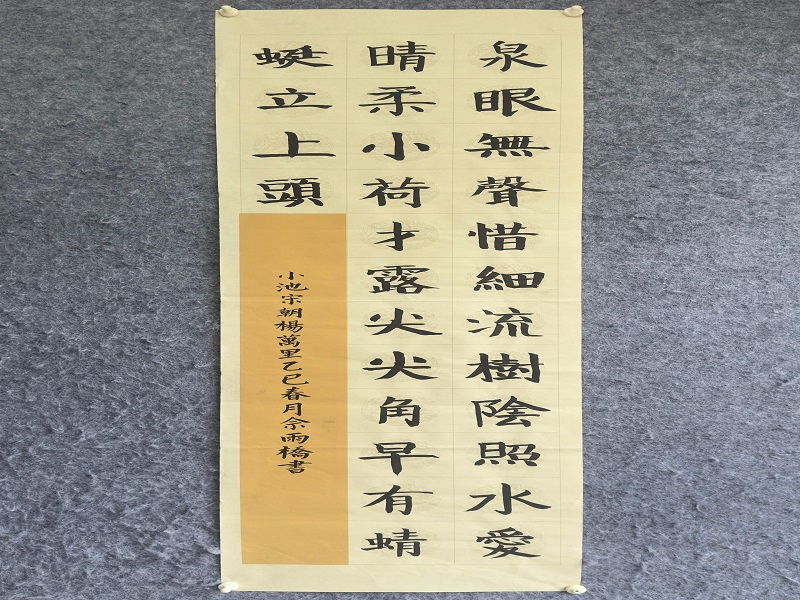 泉眼無聲惜細流樹陰照水愛
晴柔小荷才露尖尖角早有蜻
蜓立上頭
小池宋朝楊萬里乙巳春月佘雨橋書